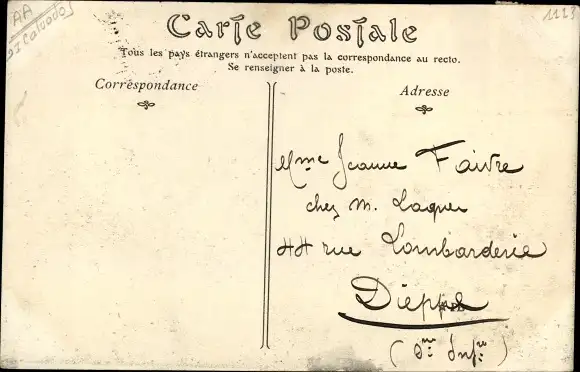 AA
Carte Postale
Tous les pays étrangers n'acceptent pas la correspondance au recto.
Se renseigner à la poste.
Correspondance
Adresse
Mme Jeanne Faivre
chez M.
44 rue Lombarderie
Dieppe
(Sne Infre)